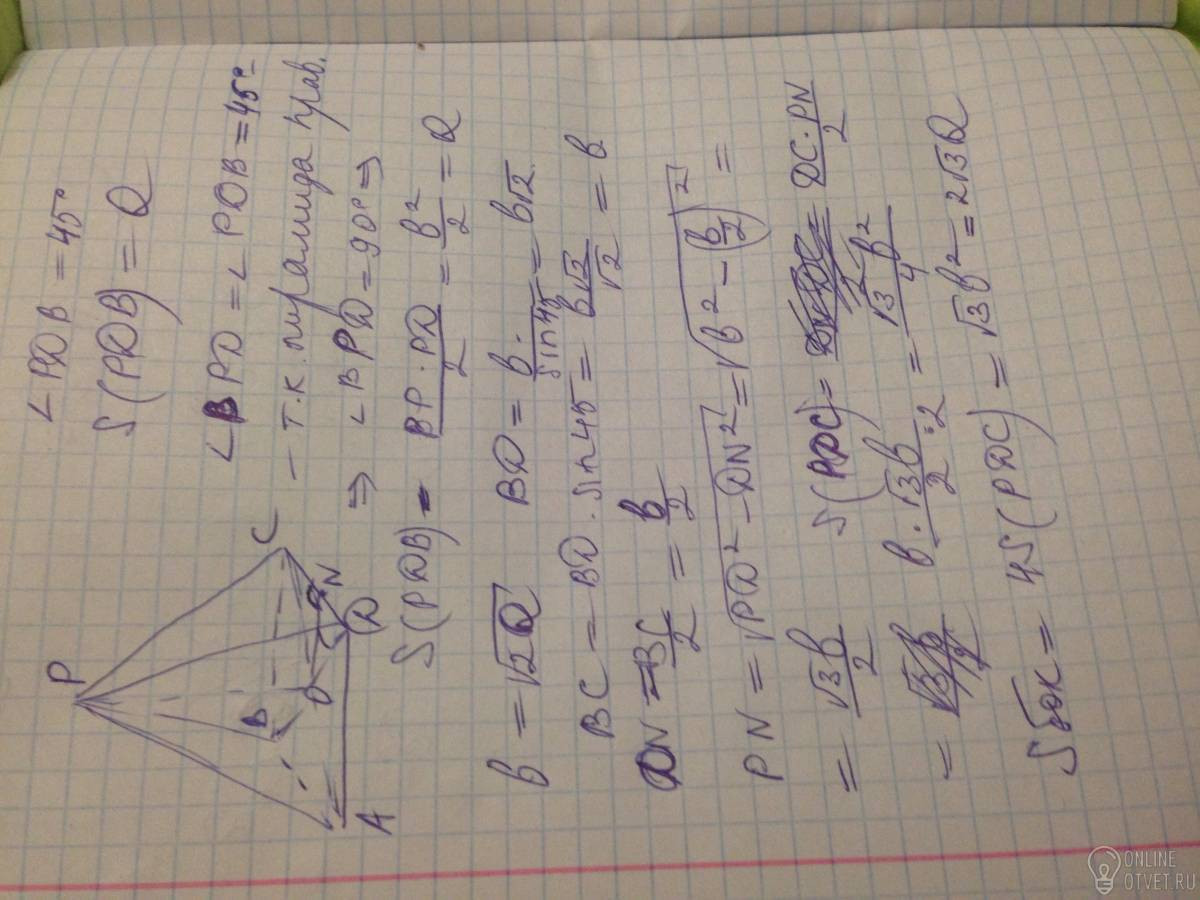 ∠PDB = 45°
S(PDB) = Q
∠BPD = ∠PDB = 45°
– т.к. пирамида прав.
⇒ ∠BPD = 90° ⇒
S(PDB) = BP·PD/2 = b²/2 = Q
b = √2Q BD = b·/sin45 = b√2.
BC = BD·sin45 = b√2/√2 = b
DN = BC/2 = b/2
PN = √PD² - DN² = √b² - (b/2)² =
= √3b/2 S(PDC) = DC·PN/2
= b·√3b/2:2 = √3b²/4
Sбок = 4S(PDC) = √3b² = 2√3Q
P
C
B
O
N
D
A
ONLINE
OTVET.RU